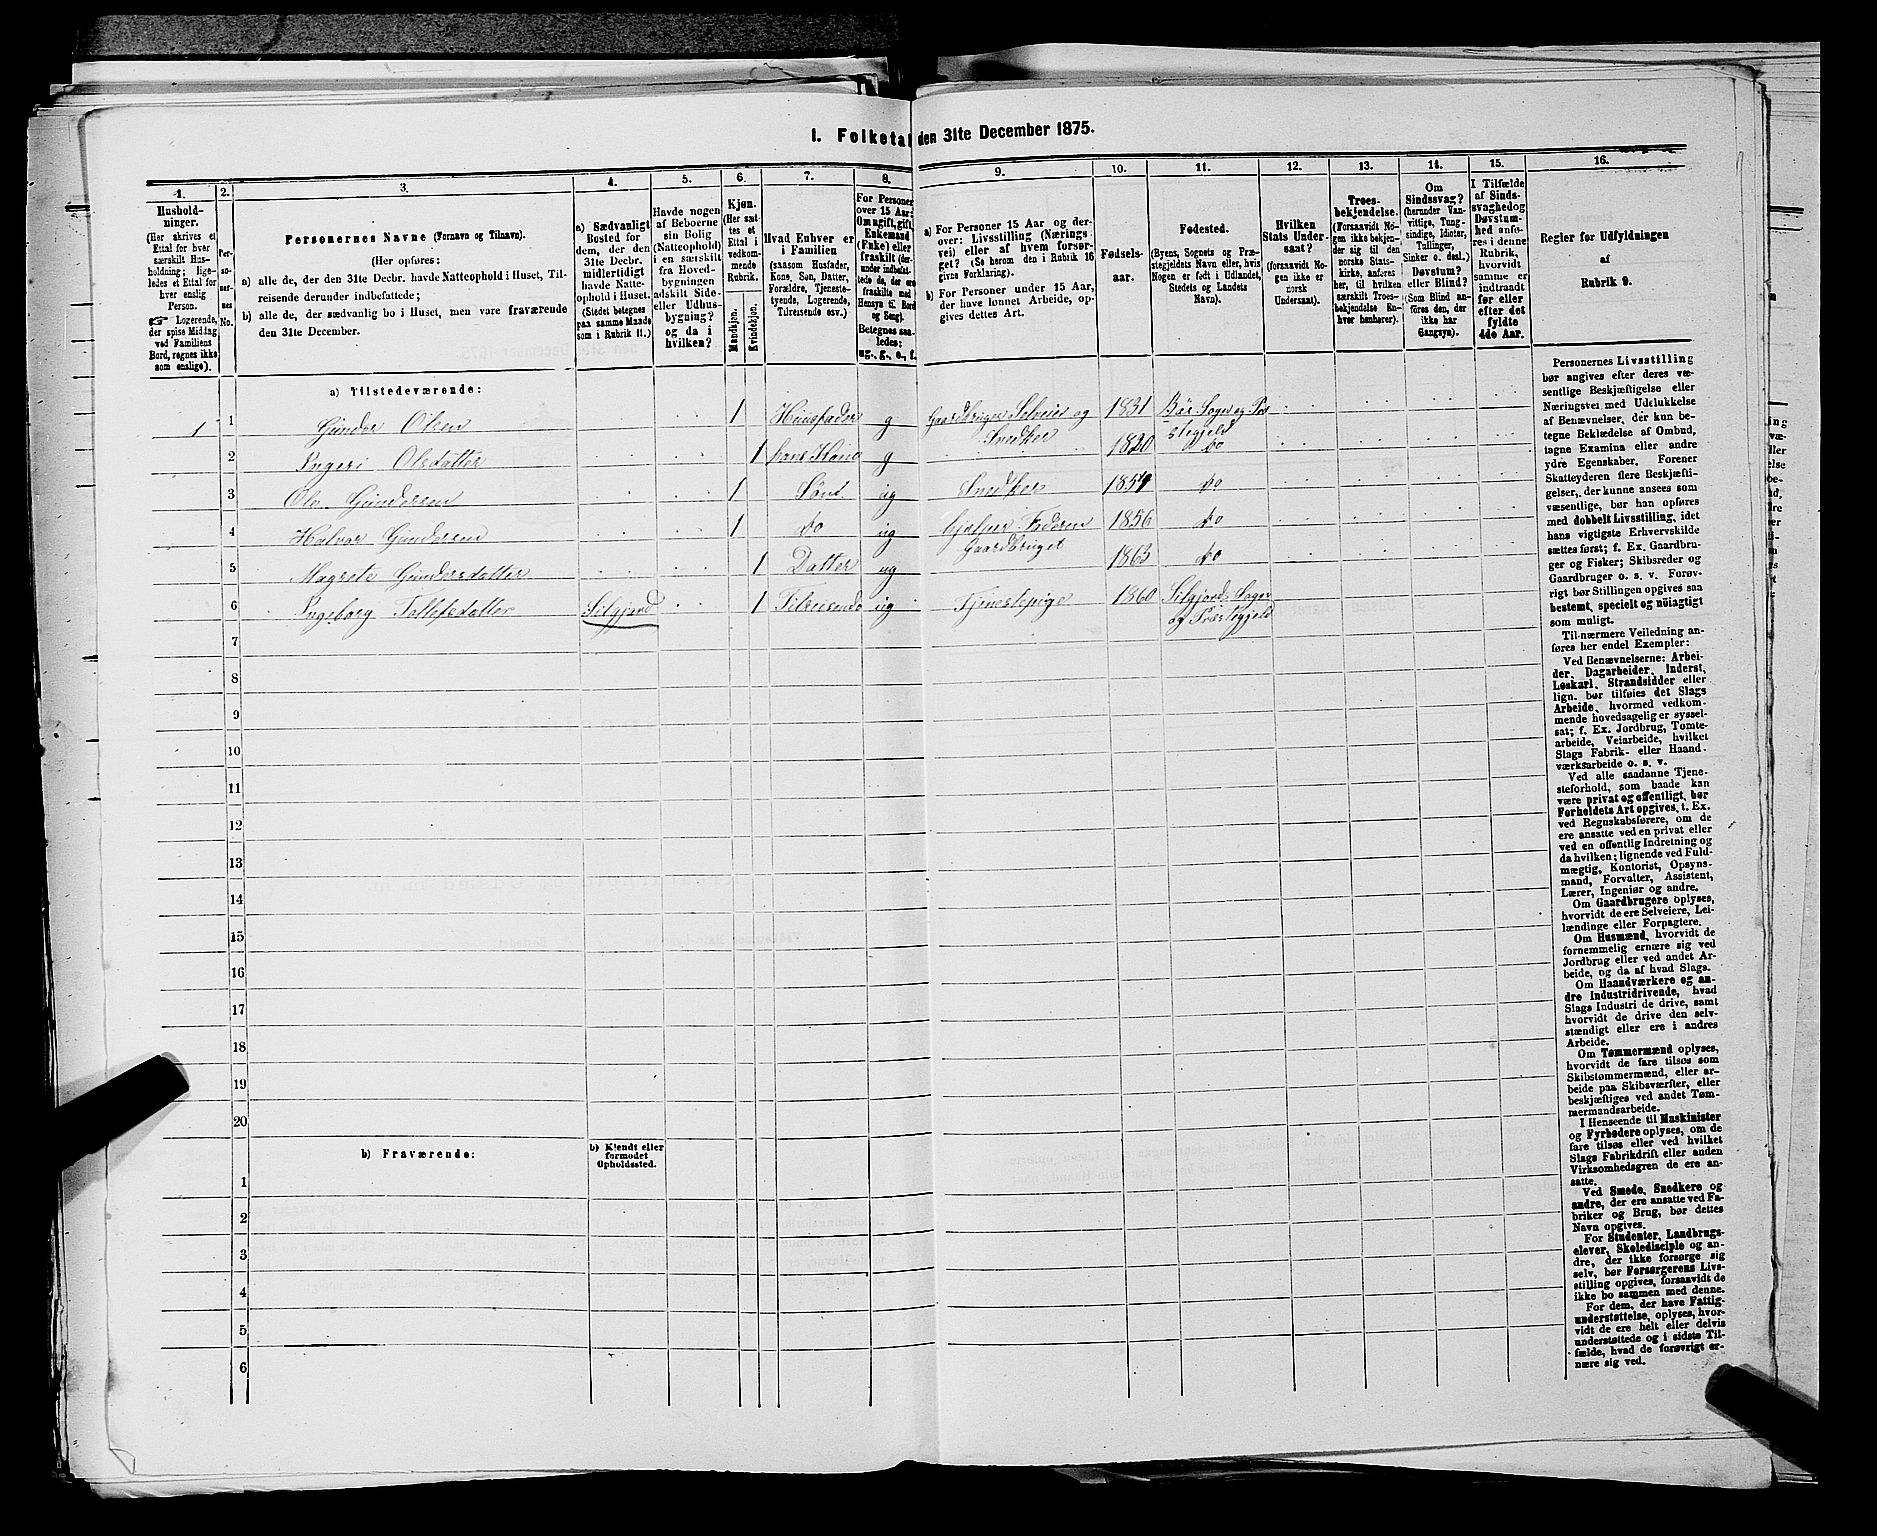 I. Folketal den 31te December 1875.
1. 2. 3. 4. 5. 6. 7. 8. 9. 10. 11. 12. 13. 14. 15. 16.
Husholdninger.
(Her skrives et
Ettal for hver
særskilt Husholdning;
ligeledes et Ettal for
hver enslig
Person.
☞ Logerende,
der spise Middag
ved Familiens
Bord, regnes ikke
som enslige).
Personernes No.
Personernes Navne (Fornavn og Tilnavn).
(Her opføres:
a) alle de, der den 31te Decbr. havde Natteophold i Huset, Tilreisende
derunder indbefattede;
b) alle de, der sædvanlig bo i Huset, men vare fraværende
den 31te December.
a) Sædvanligt
Bosted for
dem, der den
31te Decbr.
midlertidigt
havde Natteophold
i Huset.
(Stedet betegnes
paa samme Maade
som i Rubrik 11.)
Havde nogen
af Beboerne
sin Bolig
(Natteophold)
i en særskilt
fra Hovedbygningen
adskilt Side-
eller Udhusbygning?
og da i
hvilken?
Kjøn.
(Her sættes
et
Ettal i
vedkommende
Rubrik.)
Mandkjøn.
Kvindekjøn.
Hvad Enhver er
i Familien
(saasom Husfader,
Kone, Søn, Datter,
Forældre, Tjenestetyende,
Logerende,
Tilreisende osv.)
For Personer
over 15 Aar:
Om ugift, gift,
Enkemand
(Enke) eller
fraskilt (derunder
indbefattede
de, der ere
fraskilte med
Hensyn til Bord
og Seng).
Betegnes saaledes:
ug., g., e., f.
a) For Personer 15 Aar og derover:
Livsstilling (Næringsvei)
eller af hvem forsørget?
(Se herom den i Rubrik 16
givne Forklaring).
b) For Personer under 15 Aar,
der have lønnet Arbeide, opgives
dettes Art.
Fødselsaar.
Fødested.
(Byens, Sognets og Præstegjeldets
Navn eller, hvis
Nogen er født i Udlandet,
Stedets og Landets
Navn).
Hvilken
Stats Undersaat?
(forsaavidt Nogen
ikke er
norsk
Undersaat).
Troesbekjendelse.
(Forsaavidt Nogen
ikke bekjender
sig til den
norske Statskirke,
anføres
her, til hvilken
særskilt Troesbekjendelse
Enhver
henhører).
Om
Sindssvag?
(herunder Vanvittige,
Tungsindige,
Idioter,
Tullinger,
Sinker o. desl.)
Døvstum?
eller Blind?
(Som Blind anføres
den, der
ikke har
Gangsyn).
I Tilfælde
af Sindssvaghed
og
Døvstumhed
anføres
i denne
Rubrik,
hvorvidt
samme er
indtraadt
før eller
efter det
fyldte
4de Aar.
Regler for Udfyldningen
af
Rubrik 9.
a) Tilstedeværende:
1 1 Gunder Olsen 1 Huusfader g Gaardbruger Selveier og Snedker 1831 Bær Sogn og Præstegjeld
2 Ingeri Olsdatter 1 hans Kone g 1820 do
3 Ole Gundersen 1 Sønt ug Snedker 1854 do
4 Halvor Gundersen 1 do ug hjelper Faderen Gaardbruget 1856 do
5 Magrete Gundersdatter 1 Datter ug 1863 do
6 Ingeborg Tollefsdatter Silgjord 1 Tilreisende ug Tjenestepige 1860 Silgjords Sogn og Præstegjeld
7
8
9
10
11
12
13
14
15
16
17
18
19
20
b) Fraværende:
b) Kjendt eller
formodet
Opholdssted.
1
2
3
4
5
6
Personernes Livsstilling
bør angives efter deres væsentlige
Beskjæftigelse eller
Næringsvei med Udelukkelse
af Benævnelser, der kun betegne
Beklædelse af Ombud,
tagne Examina eller andre
ydre Egenskaber. Forener
Skatteyderen flere Beskjæftigelser,
der kunne ansees som
væsentlige, bør han opføres
med dobbelt Livsstilling, idet
hans vigtigste Erhvervskilde
sættes først; f. Ex. Gaardbruger
og Fisker; Skibsreder og
Gaardbruger o. s. v. Forøvrigt
bør Stillingen opgives saa
bestemt, specielt og nøiagtigt
som muligt.
Til nærmere Veiledning anføres
her endel Exempler:
Ved Benævnelserne: Arbeider,
Dagarbeider, Inderst,
Løskarl, Strandsidder eller
lign. bør tilføies det Slags
Arbeide, hvormed vedkommende
hovedsagelig er sysselsat;
f. Ex. Jordbrug, Tomtearbeide,
Veiarbeide, hvilket
Slags Fabrik- eller Haandværksarbeide
o. s. v.
Ved alle saadanne Tjenesteforhold,
som baade kan
være privat og offentligt, bør
Forholdets Art opgives, t. Ex.
ved Regnskabsførere, om de
ere ansatte ved en privat eller
ved en offentlig Indretning og
da hvilken; lignende ved Fuldmægtig,
Kontorist, Opsynsmand,
Forvalter, Assistent,
Lærer, Ingeniør og andre.
Om Gaardbrugere oplyses,
hvorvidt de ere Selveiere, Leilændinge
eller Forpagtere.
Om Husmænd, hvorvidt de
fornemmelig ernære sig ved
Jordbrug eller ved andet Arbeide,
og da af hvad Slags.
Om Haandværkere og andre
Industridrivende, hvad
Slags Industri de drive, samt
hvorvidt de drive den selvstændigt
eller ere i andres
Arbeide.
Om Tømmermænd oplyses,
hvorvidt de fare tilsøs som
Skibstømmermænd, eller arbeide
paa Skibsværfter, eller
beskjæftiges ved andet Tømmermandsarbeide.
I Henseende til Maskinister
og Fyrbødere oplyses, om de
fare tilsøs eller ved hvilket
Slags Fabrikdrift eller anden
Virksomhedsgren de ere ansatte.
Ved Smede, Snedkere og
andre, der ere ansatte ved Fabriker
og Brug, bør dettes
Navn opgives.
For Studenter, Landbrugselever,
Skoledisciple og andre,
der ikke forsørge sig
selv, bør Forsørgerens Livsstilling
opgives, forsaavidt de
ikke bo sammen med denne.
For dem, der have Fattigunderstøttelse,
oplyses, hvorvidt
de ere helt eller delvis
understøttede og i sidste Tilfælde,
hvad de forøvrigt ernære
sig ved.